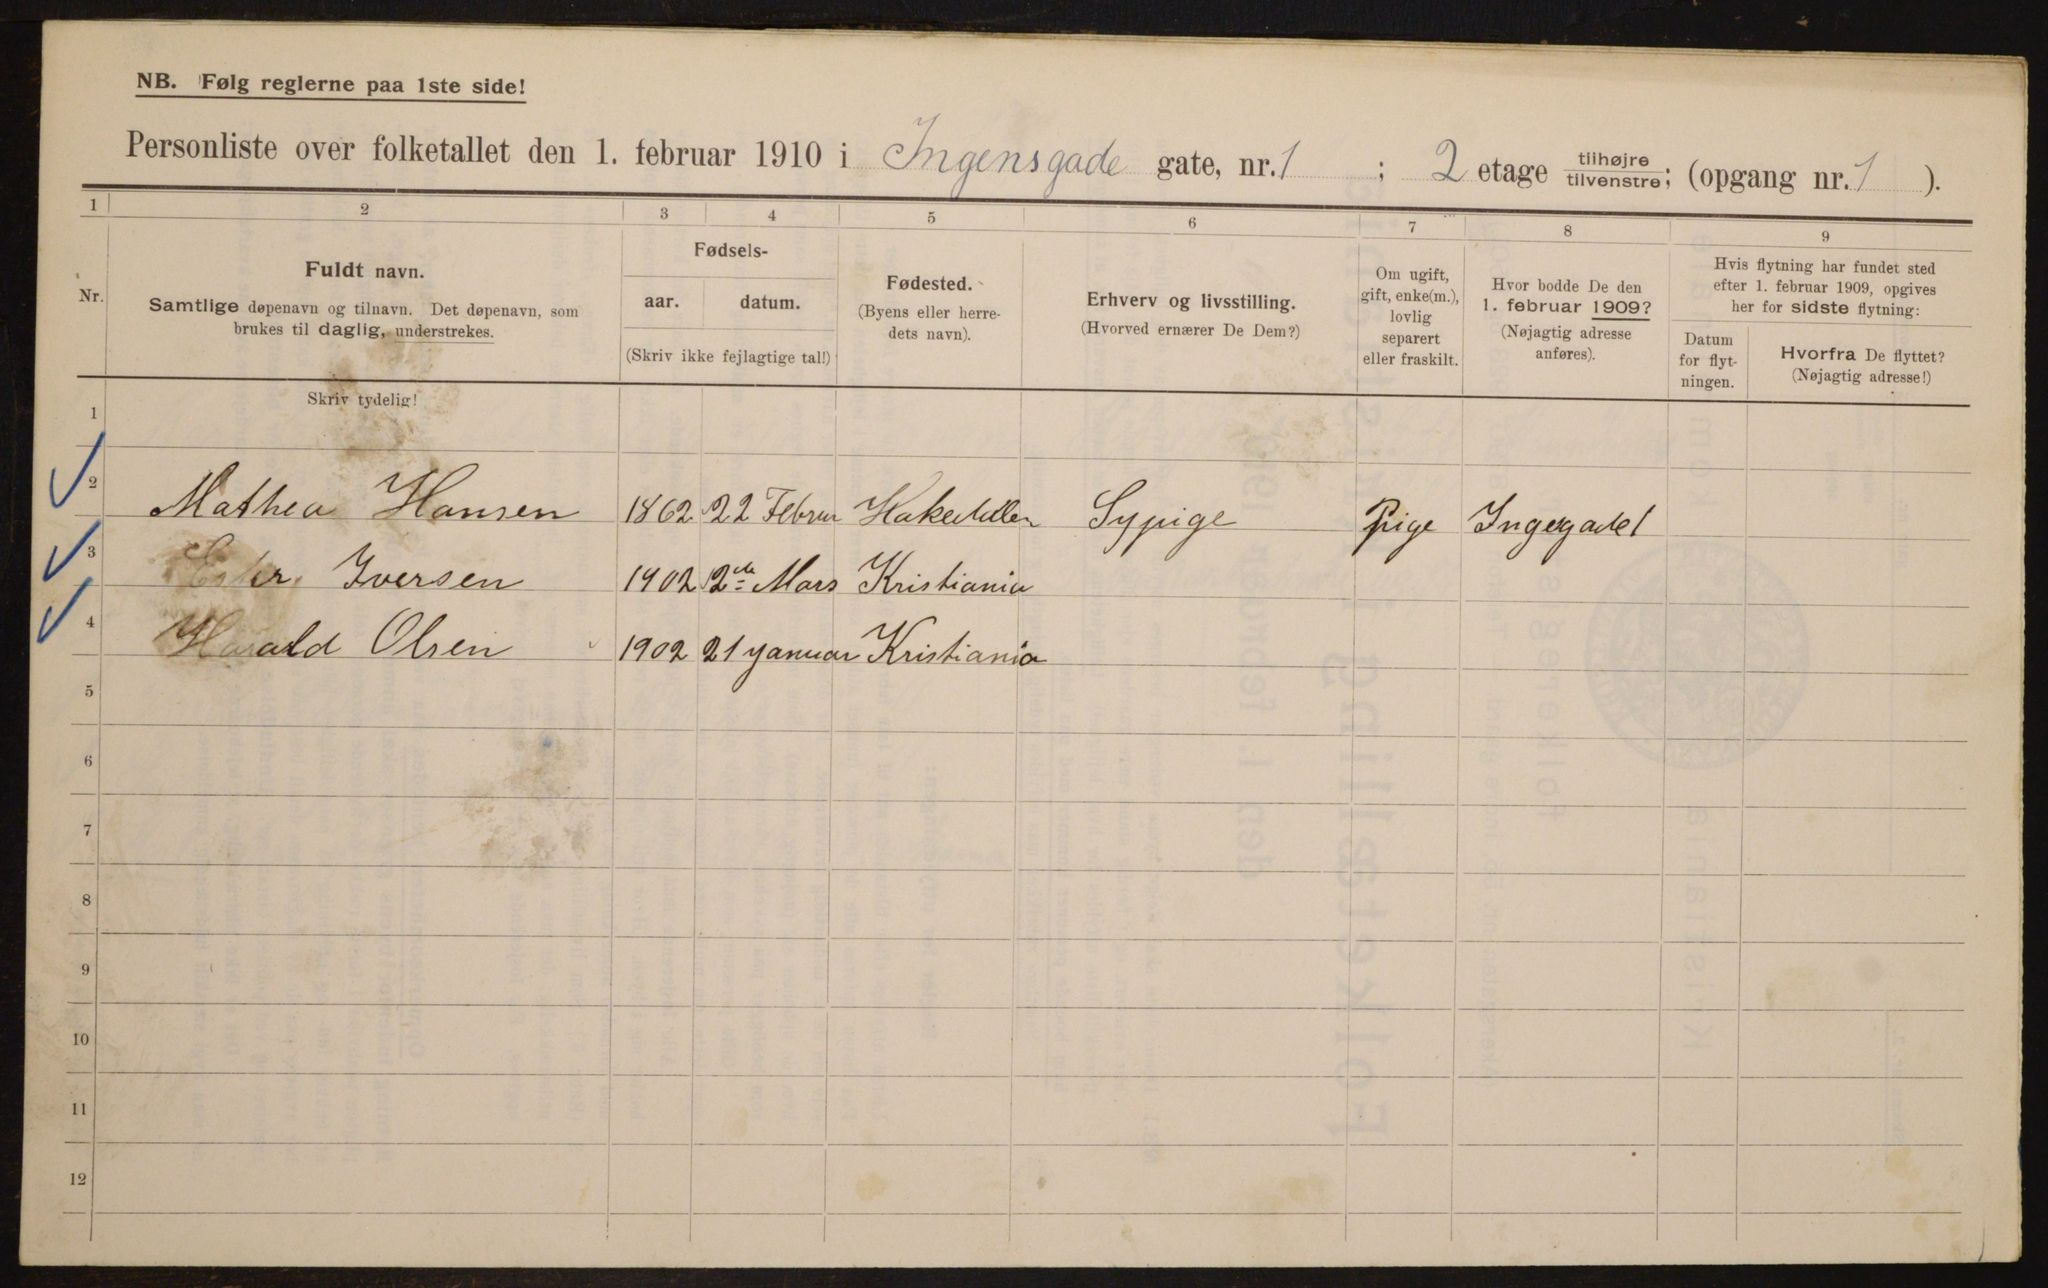 NB. Følg reglerne paa 1ste side!
Personliste over folketallet den 1. februar 1910 i Ingensgade gate, nr. 1 ; 2 etage tilhøjre tilvenstre; (opgang nr. 1 ).
1 2 3 4 5 6 7 8 9
Nr.
Fuldt navn.
Samtlige døpenavn og tilnavn. Det døpenavn, som
brukes til daglig, understrekes.
Skriv tydelig!
Fødsels-
aar. datum.
(Skriv ikke fejlagtige tal!)
Fødested.
(Byens eller herre-
dets navn).
Erhverv og livsstilling.
(Hvorved ernærer De Dem?)
Om ugift,
gift, enke(m.),
lovlig
separert
eller fraskilt.
Hvor bodde De den
1. februar 1909?
(Nøjagtig adresse
anføres).
Hvis flytning har fundet sted
efter 1. februar 1909, opgives
her for sidste flytning:
Datum
for flyt-
ningen.
Hvorfra De flyttet?
(Nøjagtig adresse!)
1
2 Mathea Hansen 1862 22 Februr Sypige Pige Ingegade 1
3 Iversen 1902 2 Mars Kristiania
4 Harald Olsen 1902 21 januar Kristiania
5
6
7
8
9
10
11
12